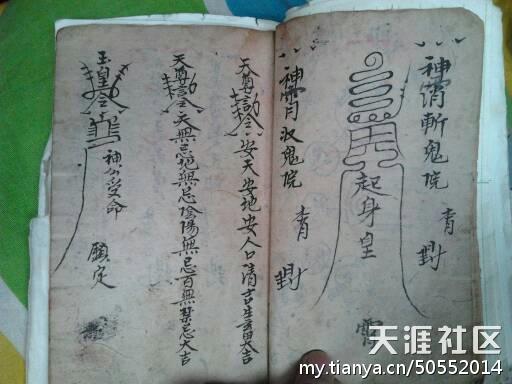 神霄斬鬼院 青對
起身皇
神霄収鬼院 青對
天尊勅令安天安地安人口清吉生畜大吉
天尊勅令天無忌地無忌陰陽無忌百無禁忌大吉
玉皇令
受命
天涯社区
my.tianya.cn/50552014